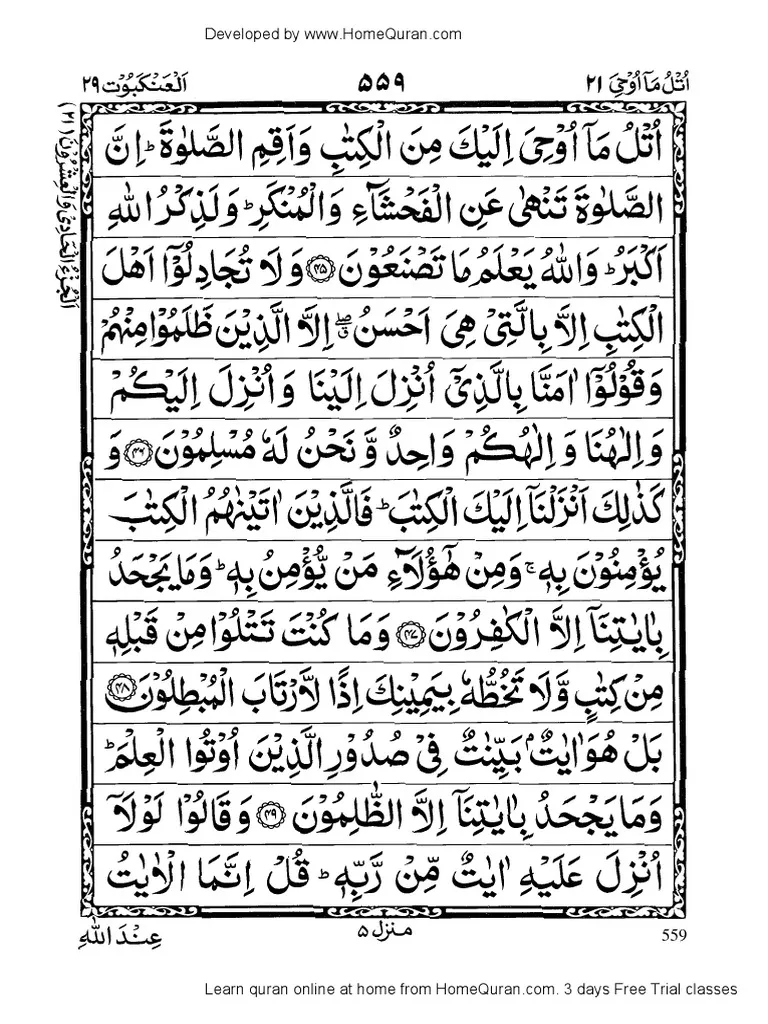 Developed by www.HomeQuran.com
اُتْلُ مَآ اُوْحِیَ ٢١ ٥٥٩ اَلْعَنْكَبُوْت ٢٩
اَلْجُزْءُ الْحَادِیْ وَالْعِشْرُوْنَ (٢١)
اُتْلُ مَآ اُوْحِیَ اِلَیْكَ مِنَ الْكِتٰبِ وَاَقِمِ الصَّلٰوةَ ؕ اِنَّ
الصَّلٰوةَ تَنْهٰی عَنِ الْفَحْشَآءِ وَالْمُنْكَرِ ؕ وَلَذِكْرُ اللّٰهِ
اَكْبَرُ ؕ وَاللّٰهُ یَعْلَمُ مَا تَصْنَعُوْنَ ﴿۴۵﴾ وَلَا تُجَادِلُوْۤا اَهْلَ
الْكِتٰبِ اِلَّا بِالَّتِیْ هِیَ اَحْسَنُ ۖۗ اِلَّا الَّذِیْنَ ظَلَمُوْا مِنْهُمْ
وَقُوْلُوْۤا اٰمَنَّا بِالَّذِیْۤ اُنْزِلَ اِلَیْنَا وَاُنْزِلَ اِلَیْكُمْ
وَاِلٰهُنَا وَاِلٰهُكُمْ وَاحِدٌ وَّنَحْنُ لَهٗ مُسْلِمُوْنَ ﴿۴۶﴾ وَ
كَذٰلِكَ اَنْزَلْنَاۤ اِلَیْكَ الْكِتٰبَ ؕ فَالَّذِیْنَ اٰتَیْنٰهُمُ الْكِتٰبَ
یُؤْمِنُوْنَ بِهٖ ۚ وَمِنْ هٰۤؤُلَآءِ مَنْ یُّؤْمِنُ بِهٖ ؕ وَمَا یَجْحَدُ
بِاٰیٰتِنَاۤ اِلَّا الْكٰفِرُوْنَ ﴿۴۷﴾ وَمَا كُنْتَ تَتْلُوْا مِنْ قَبْلِهٖ
مِنْ كِتٰبٍ وَّلَا تَخُطُّهٗ بِیَمِیْنِكَ اِذًا لَّارْتَابَ الْمُبْطِلُوْنَ ﴿۴۸﴾
بَلْ هُوَ اٰیٰتٌۢ بَیِّنٰتٌ فِیْ صُدُوْرِ الَّذِیْنَ اُوْتُوا الْعِلْمَ ؕ
وَمَا یَجْحَدُ بِاٰیٰتِنَاۤ اِلَّا الظّٰلِمُوْنَ ﴿۴۹﴾ وَقَالُوْا لَوْلَاۤ
اُنْزِلَ عَلَیْهِ اٰیٰتٌ مِّنْ رَّبِّهٖ ؕ قُلْ اِنَّمَا الْاٰیٰتُ
عِنْدَ اللّٰهِ منزل ٥ 559
Learn quran online at home from HomeQuran.com. 3 days Free Trial classes